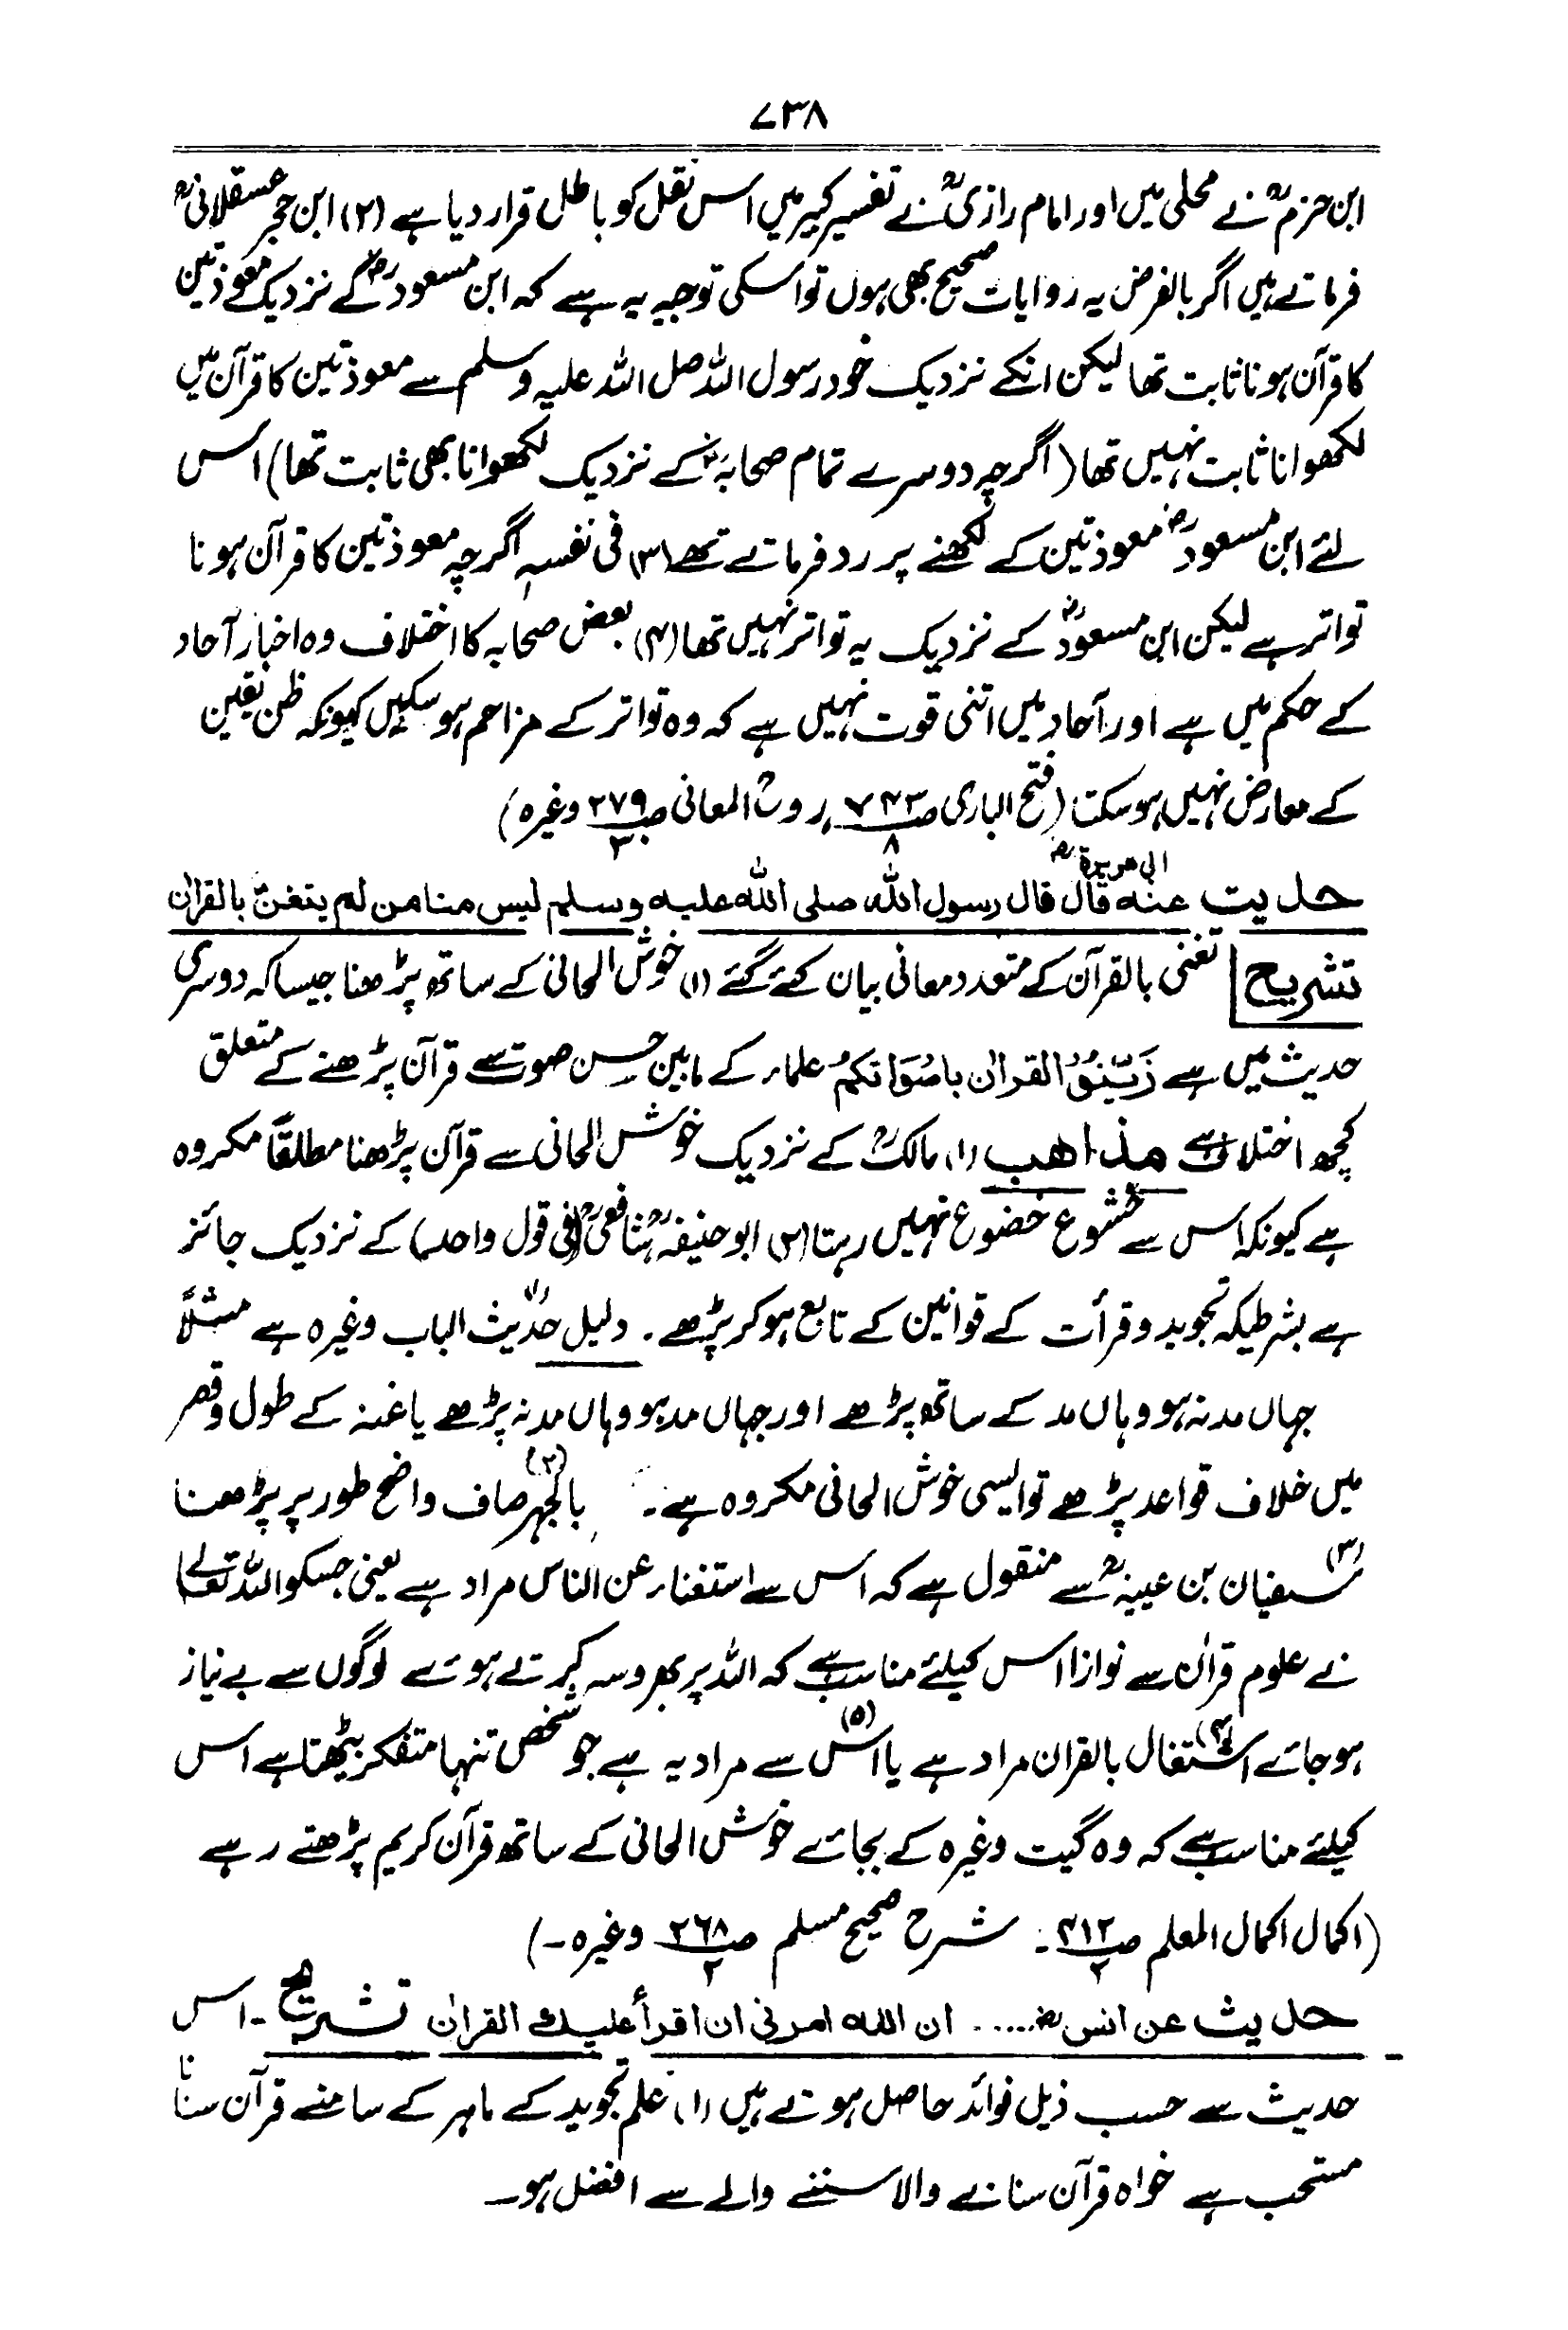 ۷۳۸
ابن حزمؒ نے محلی میں اور امام رازیؒ نے تفسیر کبیر میں اس نقل کو باطل قرار دیا ہے (۲) ابن حجر عسقلانیؒ
فرماتے ہیں اگر بالفرض یہ روایات صحیح بھی ہوں تو اسکی توجیہ یہ ہے کہ ابن مسعودؓ کے نزدیک معوذتین
کا قرآن ہونا ثابت تھا لیکن انکے نزدیک خود رسول اللہ صل اللہ علیہ وسلم سے معوذتین کا قرآن میں
لکھوانا ثابت نہیں تھا (اگرچہ دوسرے تمام صحابہؓ کے نزدیک لکھوانا بھی ثابت تھا) اس
لئے ابن مسعودؓ معوذتین کے لکھنے پر رد فرماتے تھے (۳) فی نفسہٖ اگرچہ معوذتین کا قرآن ہونا
تواتر ہے لیکن ابن مسعودؓ کے نزدیک یہ تواتر نہیں تھا (۴) بعض صحابہ کا اختلاف وہ اخبار آحاد
کے حکم میں ہے اور آحاد میں اتنی قوت نہیں ہے کہ وہ تواتر کے مزاحم ہو سکیں کیونکہ ظن یقین
کے معارض نہیں ہو سکتا (فتح الباری صـ ۷۴۳/۸ ، روح المعانی صـ ۲۷۹/۳ وغیرہ)
حدیث عنہ ابی ہریرۃؓ قال قال رسول اللہ صلی اللہ علیہ وسلم لیس منا من لم یتغن بالقراٰن
تشریح تغنی بالقرآن کے متعدد معانی بیان کئے گئے (۱) خوش الحانی کے ساتھ پڑھنا جیسا کہ دوسری
حدیث میں ہے زَیِّنُوا القراٰن باَصْوَاتکم علماء کے مابین حسن صوت سے قرآن پڑھنے کے متعلق
کچھ اختلاف ہے مذاھب (۱) مالکؒ کے نزدیک خوش الحانی سے قرآن پڑھنا مطلقاً مکروہ
ہے کیونکہ اس سے خشوع خضوع نہیں رہتا (۲) ابو حنیفہؒ شافعیؒ (فی قول واحد) کے نزدیک جائز
ہے بشرطیکہ تجوید و قرأت کے قوانین کے تابع ہو کر پڑھے ۔ دلیل (۱) حدیث الباب وغیرہ ہے مثلاً
جہاں مد نہ ہو وہاں مد کے ساتھ پڑھے اور جہاں مد ہو وہاں مد نہ پڑھے یا غنہ کے طول و قصر
میں خلاف قواعد پڑھے تو ایسی خوش الحانی مکروہ ہے ۔ (۲) بالجہر صاف واضح طور پر پڑھنا
(۳) سفیان بن عیینہؒ سے منقول ہے کہ اس سے استغناء عن الناس مراد ہے یعنی جسکو اللہ تعالےٰ
نے علوم قراٰن سے نوازا اس کیلئے مناسب ہے کہ اللہ پر بھروسہ کرتے ہوئے لوگوں سے بے نیاز
ہو جائے (۴) اشتغال بالقران مراد ہے یا (۵) اس سے مراد یہ ہے جو شخص تنہا متفکر بیٹھتا ہے اس
کیلئے مناسب ہے کہ وہ گیت وغیرہ کے بجائے خوش الحانی کے ساتھ قرآن کریم پڑھتے رہے
(اکمال اکمال المعلم صـ ۴۱۲/۲ ۔ شرح صحیح مسلم صـ ۲۶۸/۲ وغیرہ ۔)
حدیث عن انسؓ ..... ان اللہ امرنی ان اقرأ علیک القراٰن تشریح ۔ اس
حدیث سے حسب ذیل فوائد حاصل ہوتے ہیں (۱) علم تجوید کے ماہر کے سامنے قرآن سنانا
مستحب ہے خواہ قرآن سنانے والا سننے والے سے افضل ہو ۔